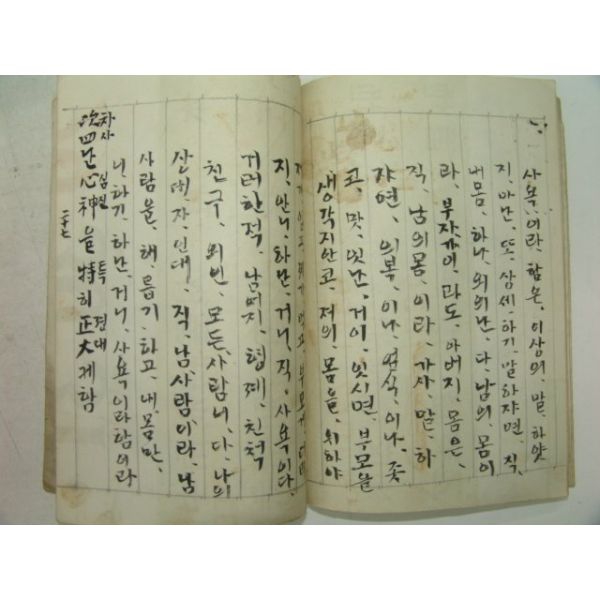 사욕이라, 함은, 이상의, 말, 하얏
지, 마난, 또, 상세, 하기, 말하쟈면, 직,
내몸, 하나, 외의난, 다, 남의, 몸이
라, 부자간이, 라도, 아버지, 몸은,
직, 남의몸, 이라, 가사, 말, 하
쟈면, 의복, 이나, 연식, 이나, 죳
고, 맛, 잇난, 거이, 잇시면, 부모을
생각지안코, 저의, 몸을, 위하야
지, 안니, 하난, 거니, 직, 사욕이다,
거러한적, 남머지, 형제, 친척
친구, 외인, 모든, 사람니, 다, 나의
상대, 자, 인대, 직, 남사람이라, 남
사람을, 해, 롭기, 하고, 내몸만,
니, 하기, 하난, 거니, 사욕이라함이라
차사 심신 특 정대
次四난 心神을 特히 正大케함
二十七